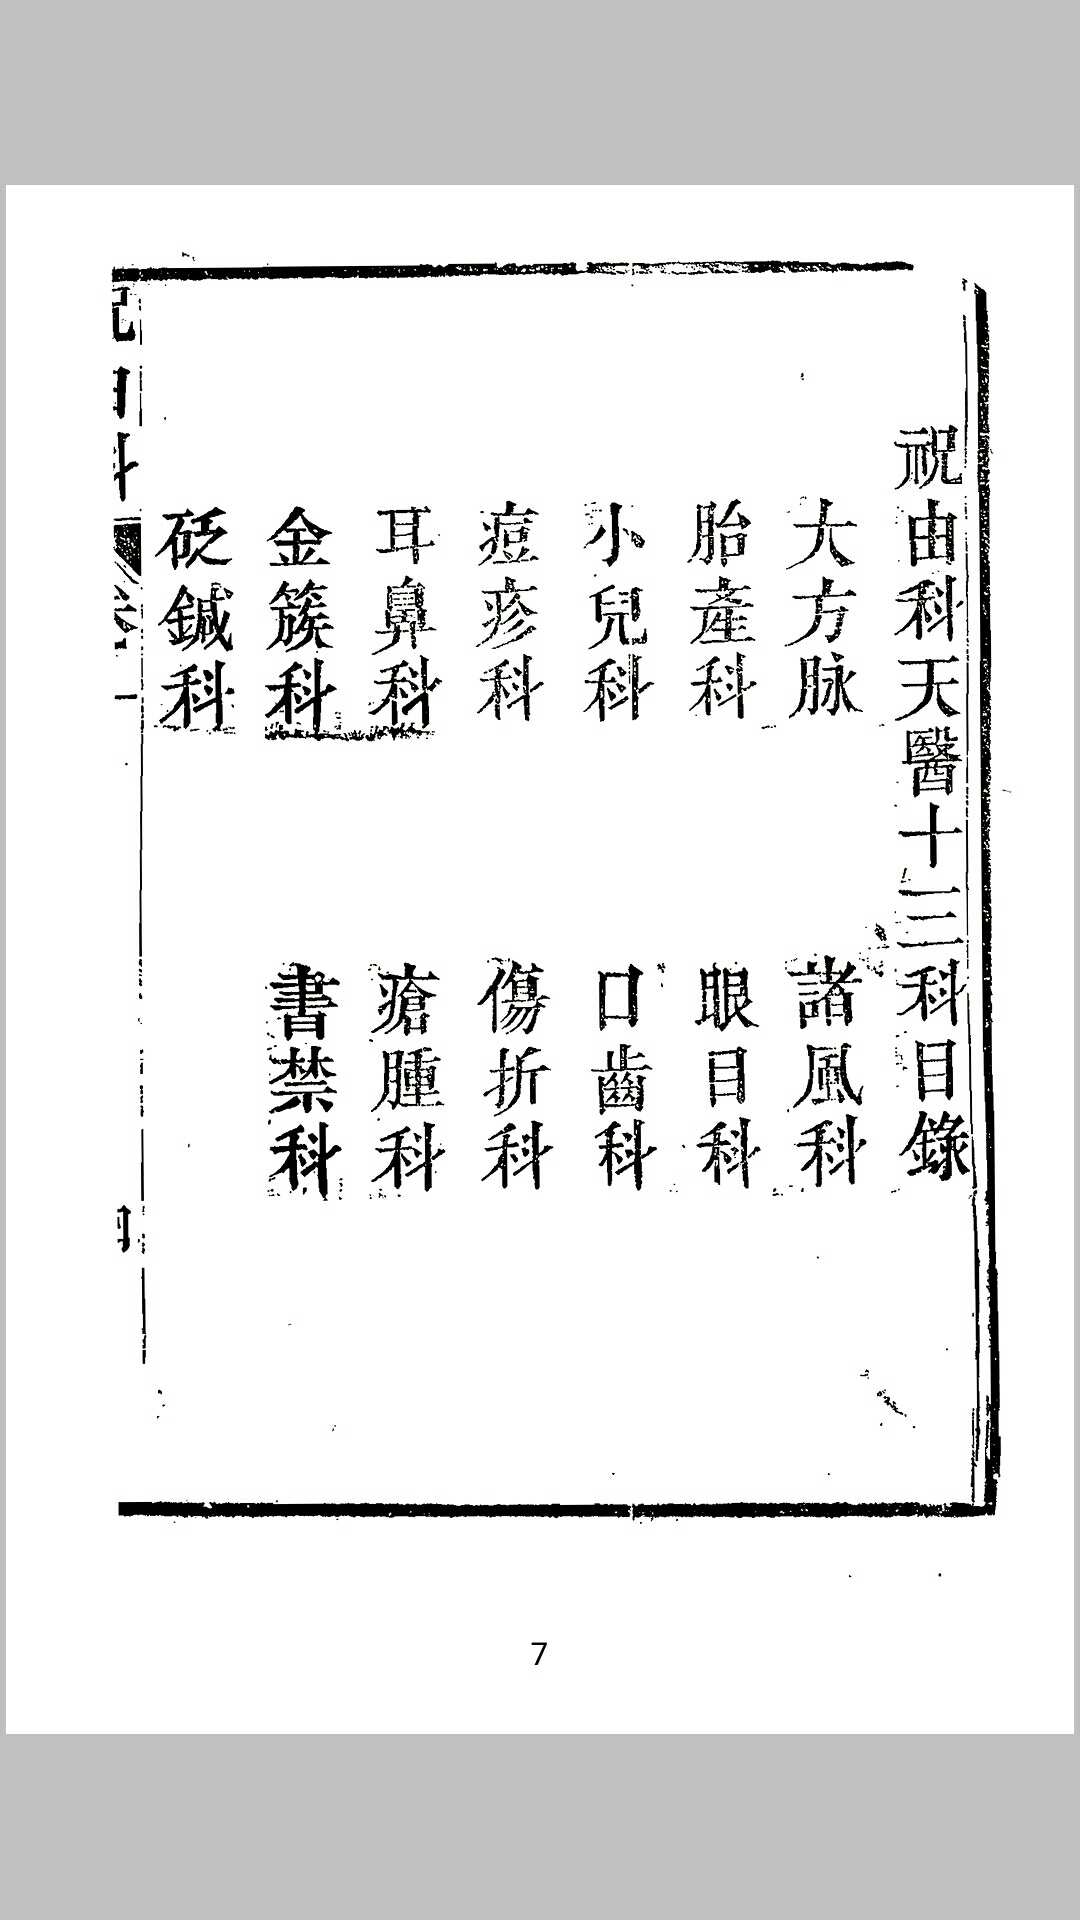 祝由科天醫十三科目錄
大方脉
諸風科
胎產科
眼目科
小兒科
口齒科
痘疹科
傷折科
耳鼻科
瘡腫科
金簇科
書禁科
砭鍼科
由科
卷一
7